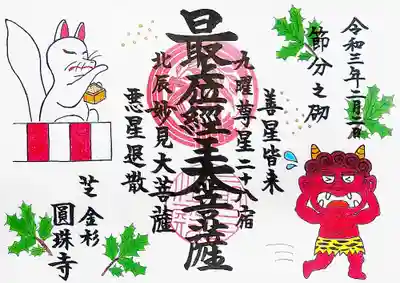 令和三年二月二日
節分之砌
善星皆来
九曜尊星二十八宿
最上位經王大菩薩
北辰妙見大菩薩
悪星退散
芝金杉
圓珠寺